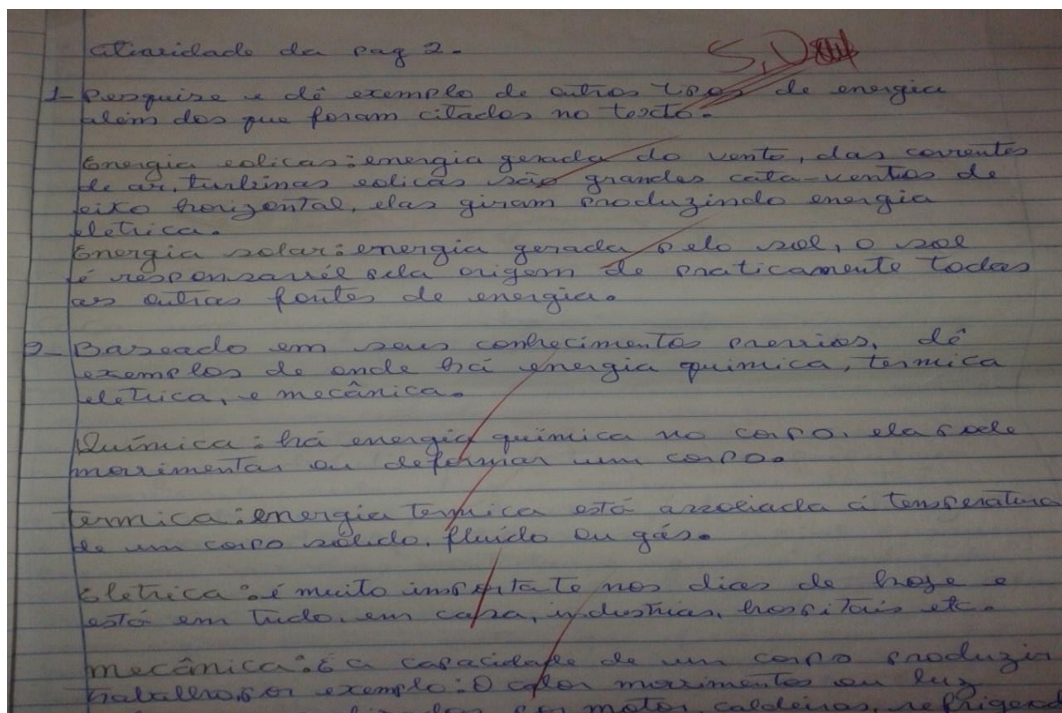 atiavidade da pag 2.
S, D
1- Pesquise e dê exemplo de outros tipos de energia
além dos que foram citados no texto.
Energia eolicas: energia gerada do vento, das correntes
de ar, turbinas eolicas são grandes cata-ventos de
eixo horizontal, elas giram produzindo energia
eletrica.
Energia solar: energia gerada pelo sol, o sol
é responsavél pela origem de praticamente todas
as outras fontes de energia.
2- Baseado em seus conhecimentos previos, dê
exemplos de onde há energia química, termica
eletrica, e mecânica.
Química: há energia química no corpo, ela pode
movimentar ou deformar um corpo.
termica: energia termica está associada á temperatura
de um corpo solido, fluído ou gás.
Eletrica: é muito importate nos dias de hoje e
está em tudo, em casa, industrias, hospitais etc.
mecânica: é a capacidade de um corpo produzir
trabalho, por exemplo: O calor movimentos ou luz
por motor, caldeiras, refrigera